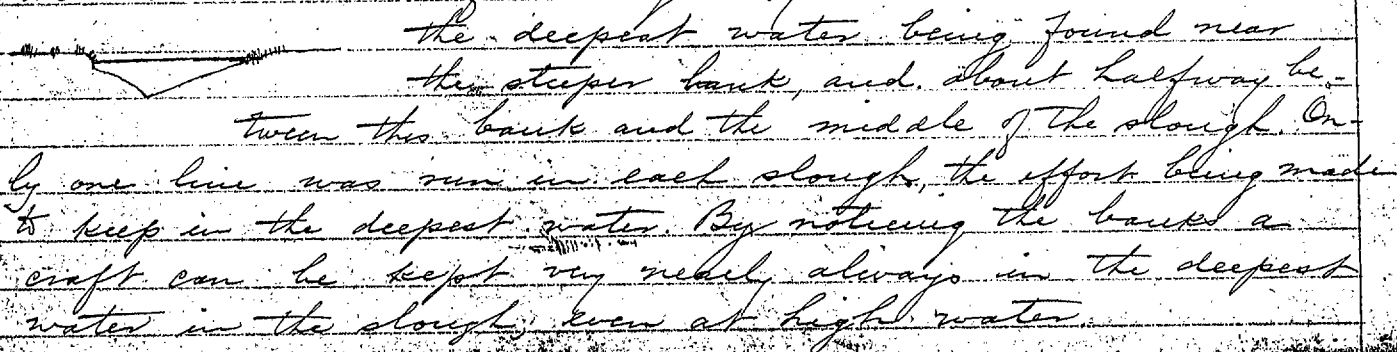 the deepest water being found near
the steeper bank, and about halfway be-
tween this bank and the middle of the slough. On-
ly one line was run in each slough, the effort being made
to keep in the deepest water. By noticing the banks a
craft can be kept very nearly always in the deepest
water in the slough, even at high water.